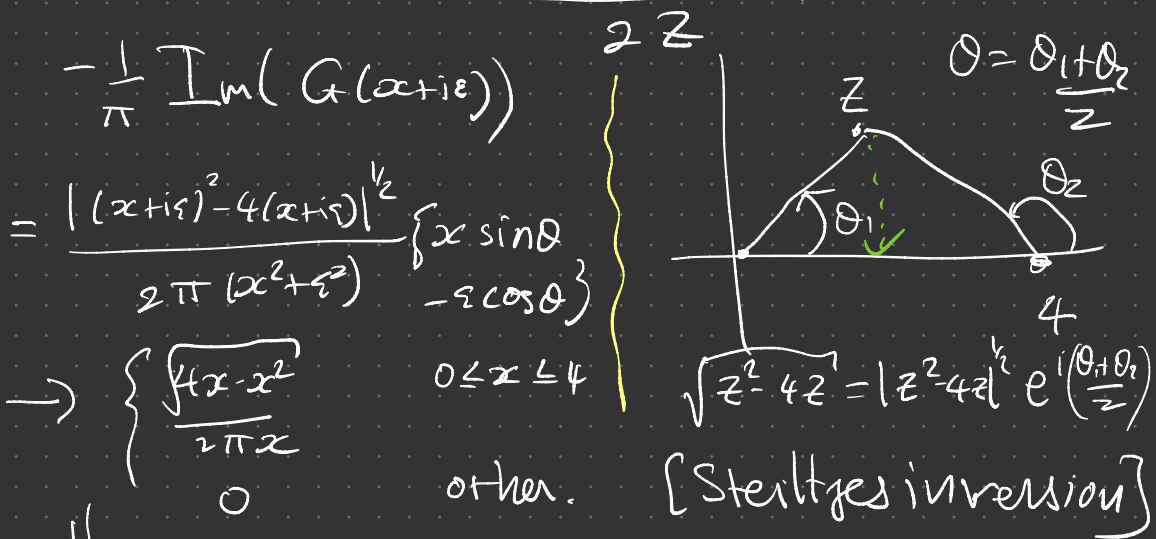 2 Z
-1/π Im( G(x+iε))
= |(x+iε)²-4(x+iε)|^½ / 2π(x²+ε²) {x sinθ
-ε cosθ}
→ { √4x-x² / 2πx 0≤x≤4
0 other.
θ = θ₁+θ₂ / 2
Z
θ₁
θ₂
4
√z²-4z = |z²-4z|^½ e^i(θ₁+θ₂/2)
[Steiltjes inversion]